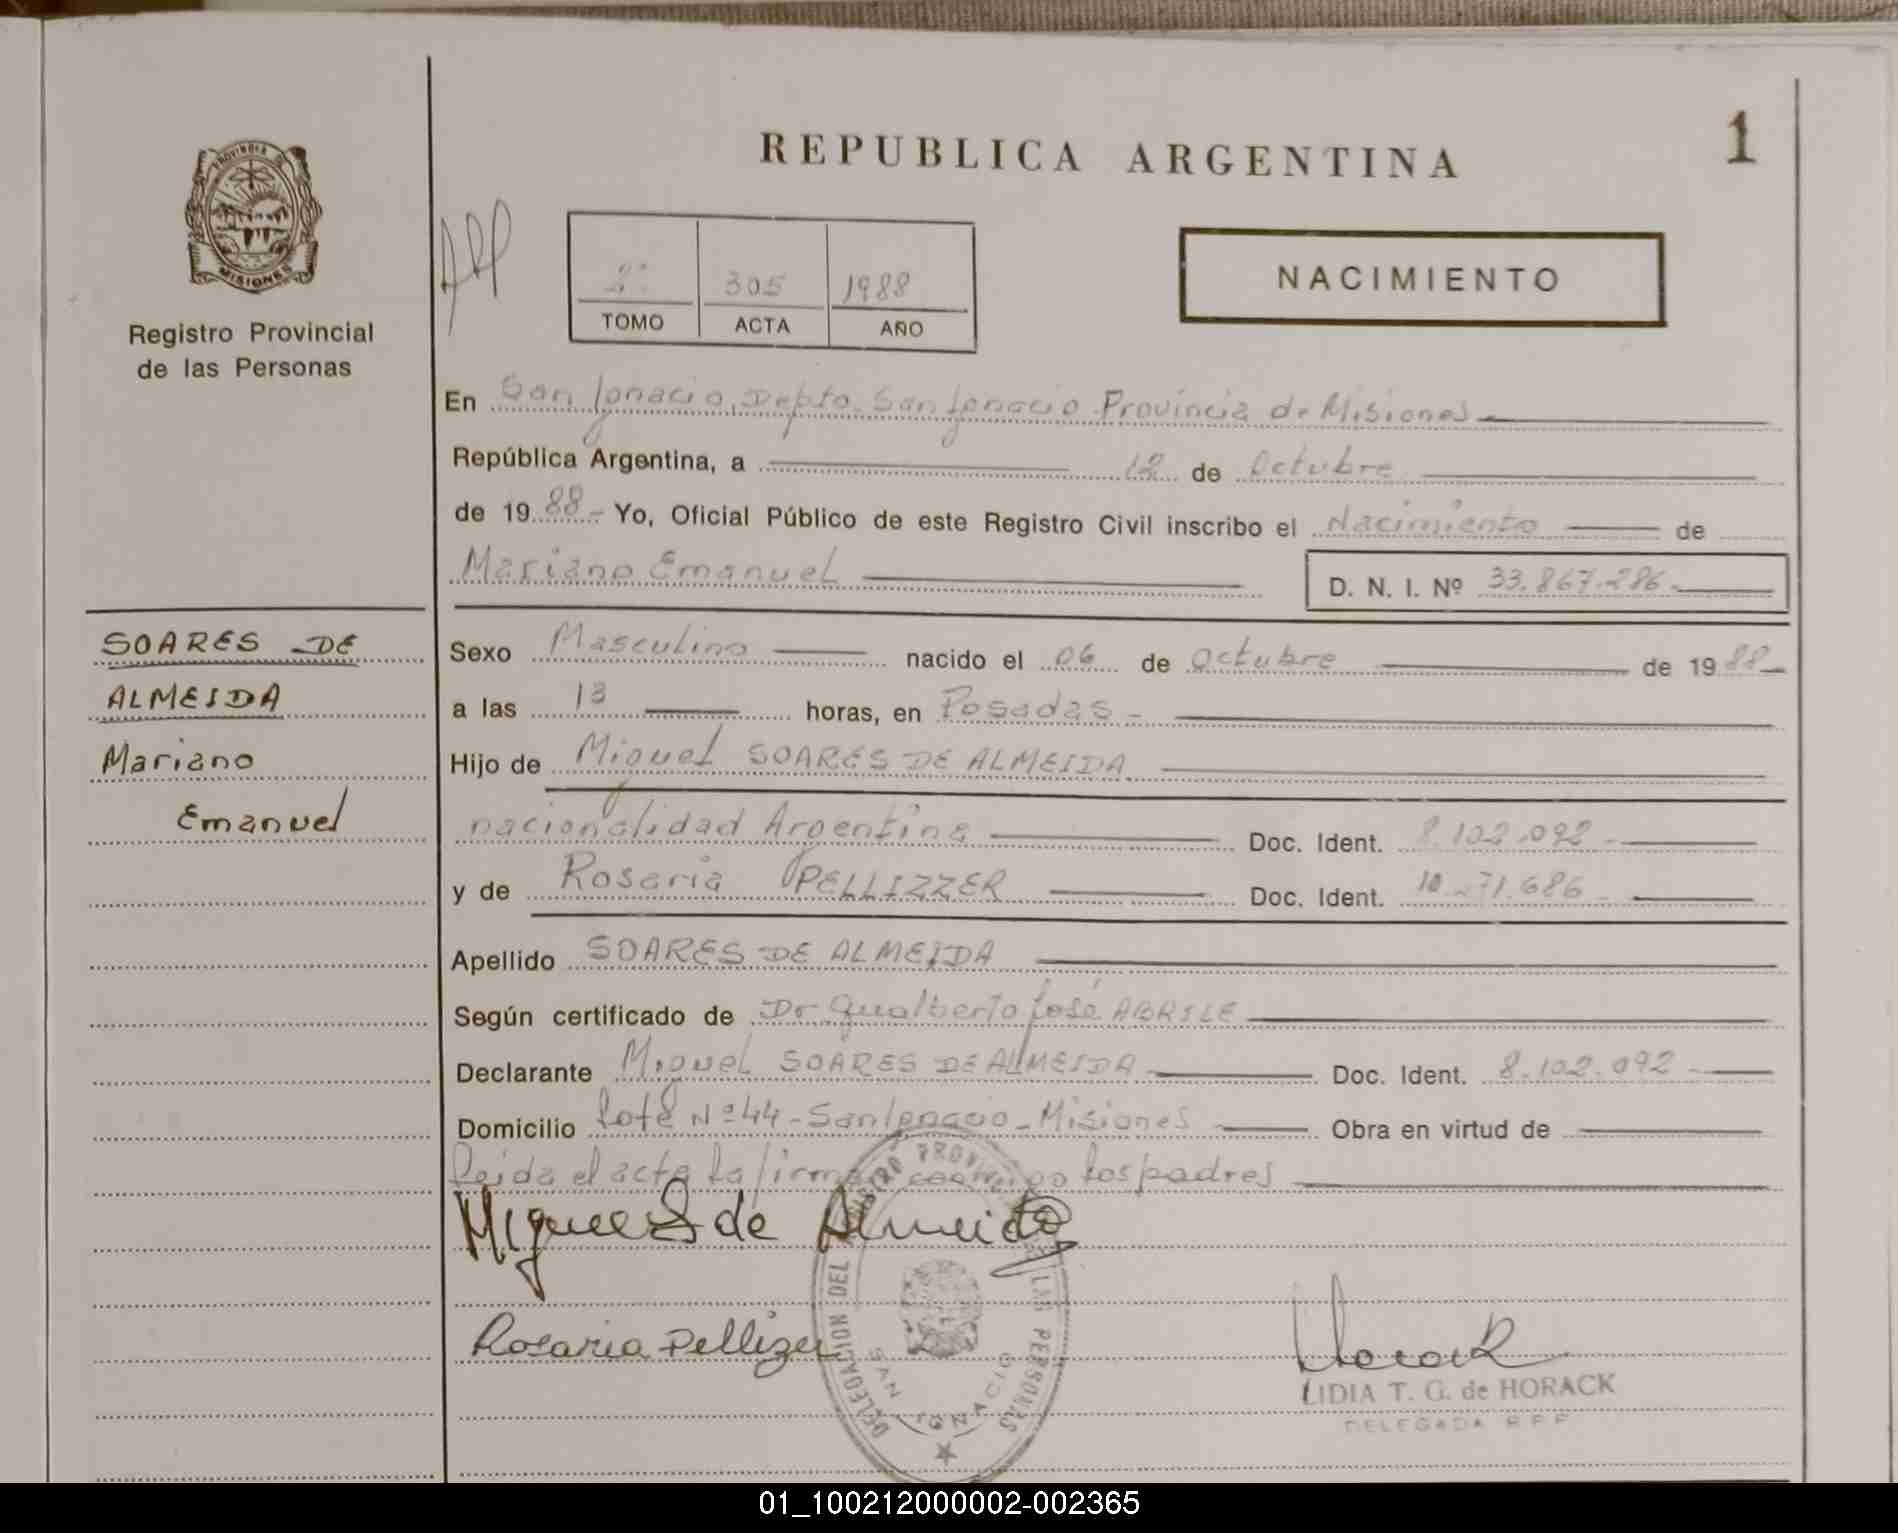 REPUBLICA ARGENTINA
1
PROVINCIA DE
MISIONES
Registro Provincial
de las Personas
2º 305 1988
TOMO ACTA AÑO
NACIMIENTO
En San Ignacio, Depto. San Ignacio Provincia de Misiones
República Argentina, a 12 de Octubre
de 1988 - Yo, Oficial Público de este Registro Civil inscribo el Nacimiento de
Mariano Emanuel
D. N. I. Nº 33.867.286.-
SOARES DE
ALMEIDA
Mariano
Emanuel
Sexo Masculino nacido el 06 de Octubre de 1988-
a las 13 horas, en Posadas -
Hijo de Miguel SOARES DE ALMEIDA
nacionalidad Argentina Doc. Ident. 8.102.092 -
y de Rosaria PELLIZZER Doc. Ident.
Apellido SOARES DE ALMEIDA
Según certificado de Dr Gualberto José ABRILE
Declarante Miguel SOARES DE ALMEIDA Doc. Ident. 8.102.092 -
Domicilio Lote Nº 44 - San Ignacio - Misiones Obra en virtud de
Leída el acta la firman conmigo los padres
Miguel S de Almeida
Rosaria Pellizer
Horack
LIDIA T. G. de HORACK
DELEGADA
DELEGACION DEL REGISTRO PROVINCIAL DE LAS PERSONAS
SAN IGNACIO
01_100212000002-002365